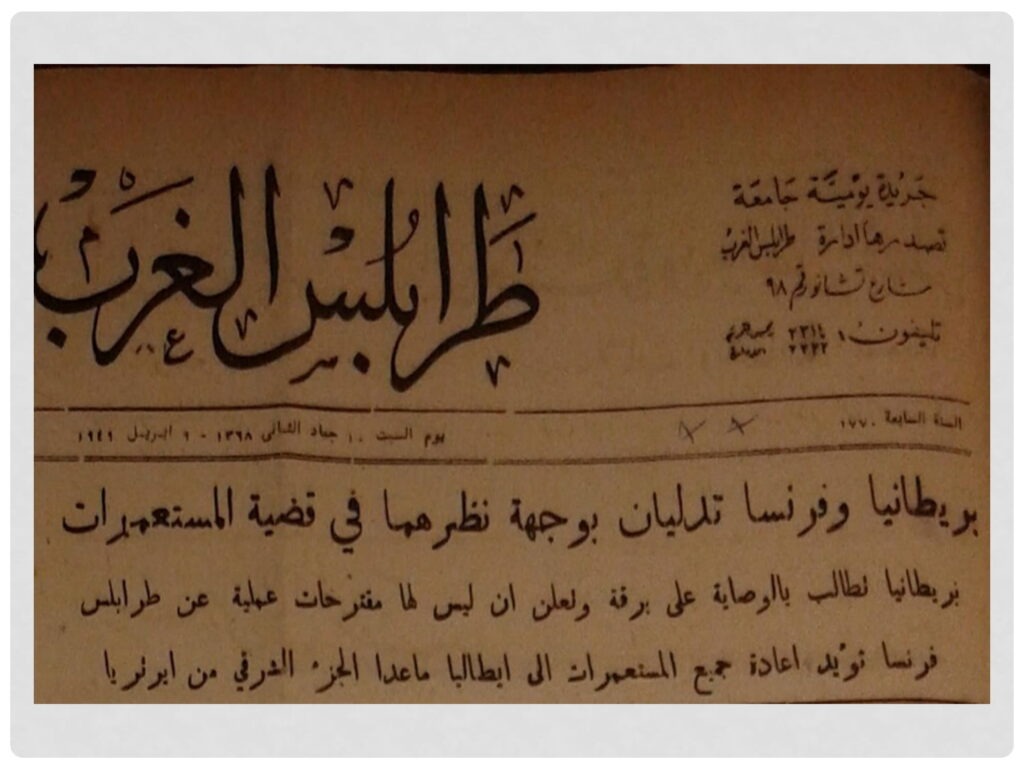 جريدة يومية جامعة
تصدرها ادارة طرابلس الغرب
شارع تشانو رقم ٩٨
تليفون: ٢٣١٤ ٢٢٢٢
طرابلس الغرب
السنة السابعة ١٧٧٠
يوم السبت ١٠ جماد الثاني ١٣٦٨ - ٩ ابريل ١٩٤٩
بريطانيا وفرنسا تدليان بوجهة نظرهما في قضية المستعمرات
بريطانيا تطالب بالوصاية على برقة وتعلن ان ليس لها مقترحات عملية عن طرابلس
فرنسا تؤيد اعادة جميع المستعمرات الى ايطاليا ماعدا الجزء الشرقي من ايرتريا